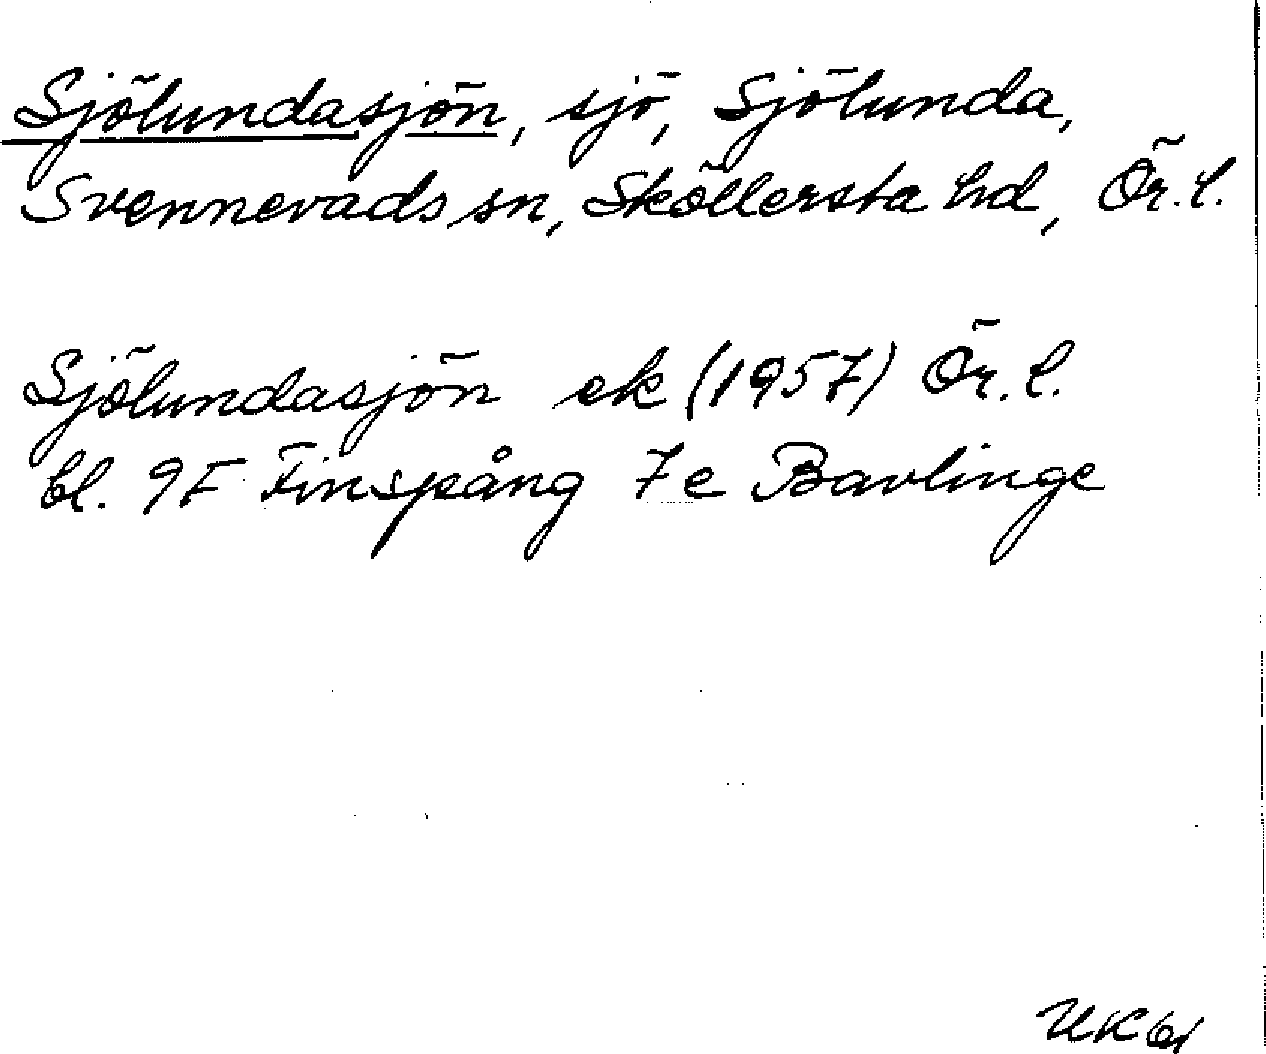 Sjölundasjön, sjö, Sjölunda,
Svennevads sn, Sköllersta hd, Ör. l.
Sjölundasjön ek (1957) Ör. l.
bl. 9F Finspång 7e Bavlinge
UK61